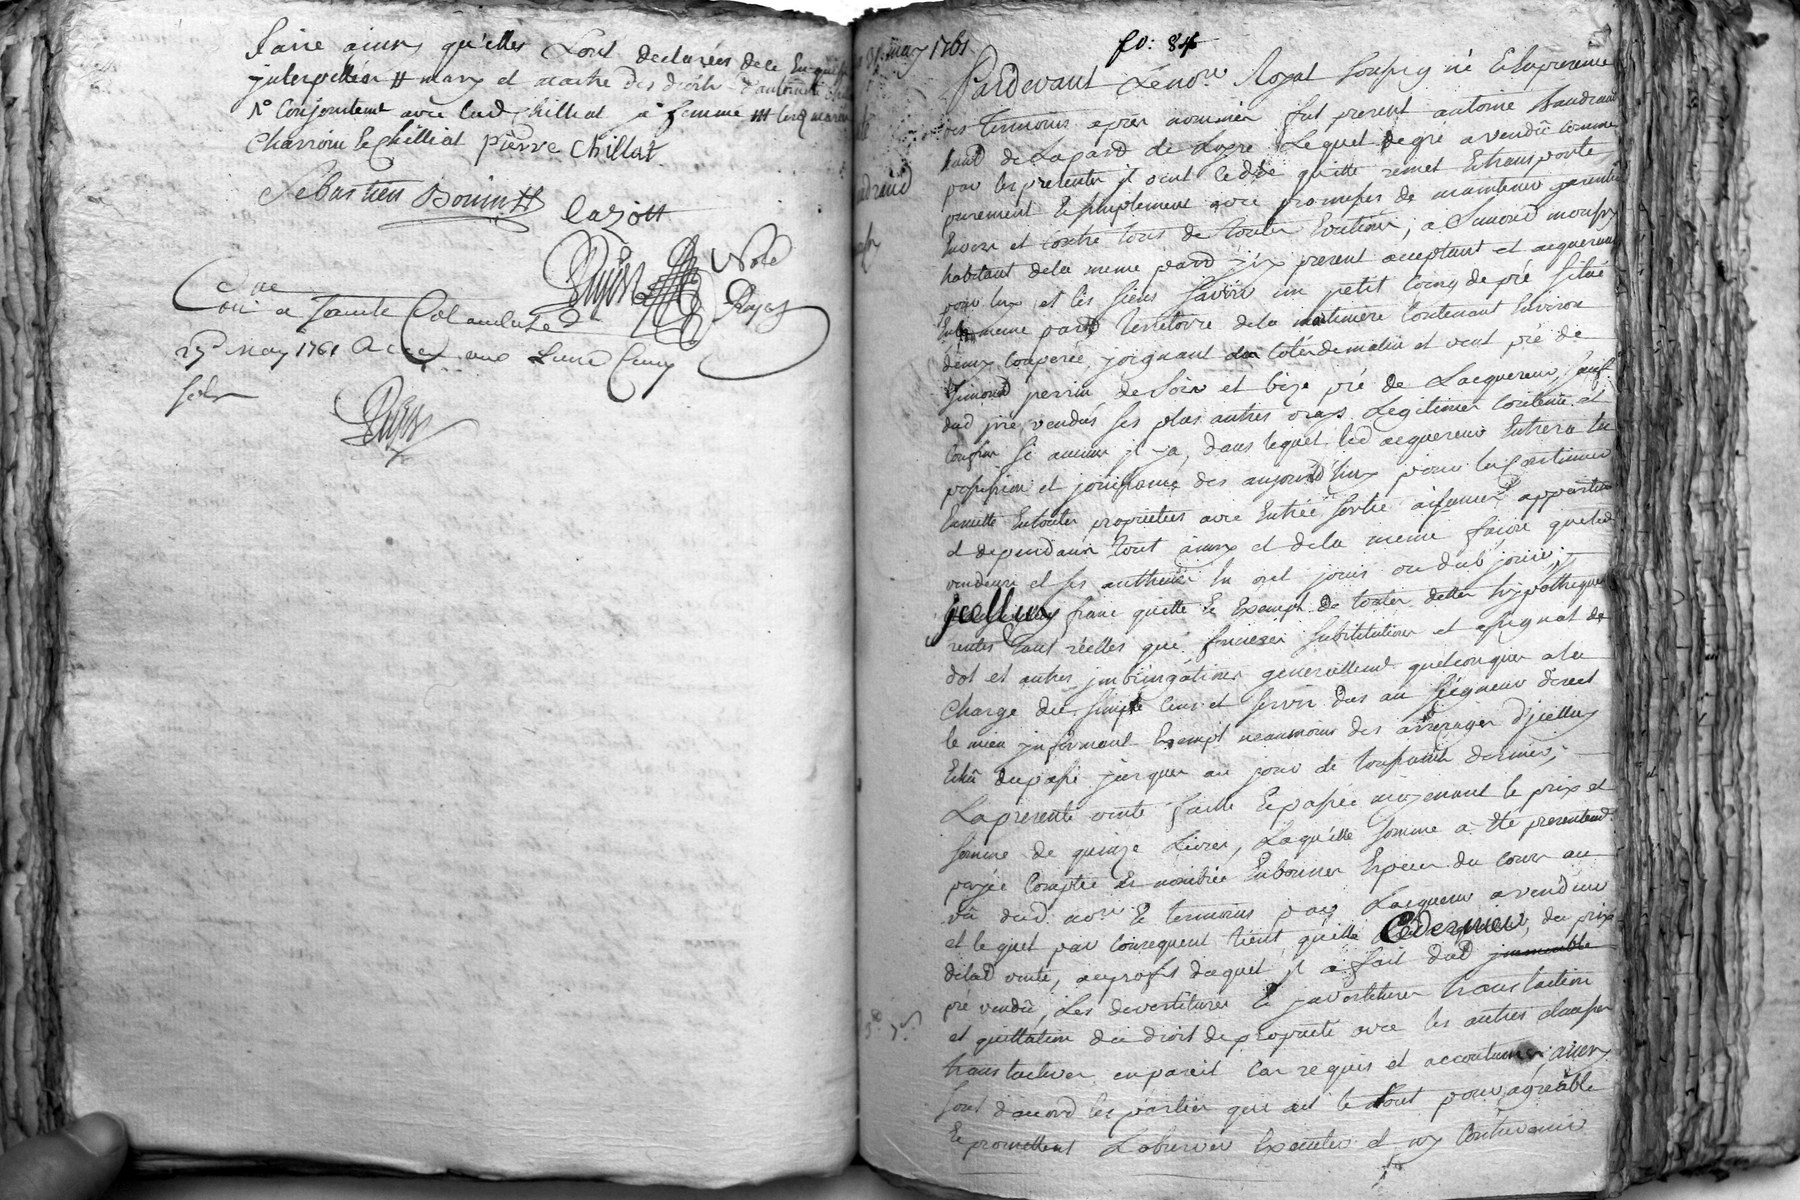 faire ainsy qu'elles l'ont declarées de ce enquises
interpellées # mary et maitre des droits d'antoinette
N° Conjointement avec lad chilliat sa femme ### led
Charroin le chilliat pierre chillat
Sebastien Bonin
Cazott
Pujos Noré
Pujos
Con^né a sainte Colombe
27 May 1761 Reçu
sols
Pujos
31 may 1761
fo: 84
Pardevant Le no^re Royal soussigné et en presence
des temoins apres nommés fut present antoine
land de la parr de Loyre Lequel de gré a vendu comme
par les presentes il vend cedde quitte remet et transporte
purement et simplement avec promesses de maintenir garentir
envers et contre tous de toutes evictions, a Simond
habitant de la meme parr icy present acceptant et acquereur
pour luy et les siens savoir un petit coing de pré situé
en la meme parr territoire de la contenant environ
deux couperée, joignant du coté de matin et vent pré de
Simond perrin, de soir et bize pré de Lacquereur, sauf
dud pré vendus ses plus autres vrays legitimes confins et
confins si aucuns il y a, dans lequel led acquereur entrera en
possession et jouissance des aujourd'huy pour en continuer
ensuitte en toutes proprietées avec entrée sortie aisances appartenances
et dependances tout ainsy et de la meme façon que led
vendeur et ses autheurs en ont jouis ou dub jouir,
jcelluy franc quitte et exempt de toutes dettes hypotheques
rentes tant réelles que foncieres substitution et assignat de
dot et autres jmbrings generallement quelconques a la
charge du simple cens et servis dus au seigneur direct
le mieu jnformant exempt neanmoins des arrerages d'jcelluy
echû du passé jusques au jour de toussaint dernier,
La presente vente faitte et passée moyenant le prix et
somme de quinze Livres, Laquelle somme a été presentement
payée Comptée et nombrée en bonnes especes du cours au
vû dud no^re et temoins par Lacquereur a vendeur
et lequel par consequent tient quitte Ce dernier, du prix
delad vente, au profit duquel il a fait dud jmmeuble
pré vendu, Les devestitures et jnvestitures translation
et quittation du droit de propriété avec les autres clauses
translatives en pareil cas requis et accoutumés ainsy
sont d'accord les parties qui ont le tout pour agréable
et promettent L'observer executer et n'y contrevenir